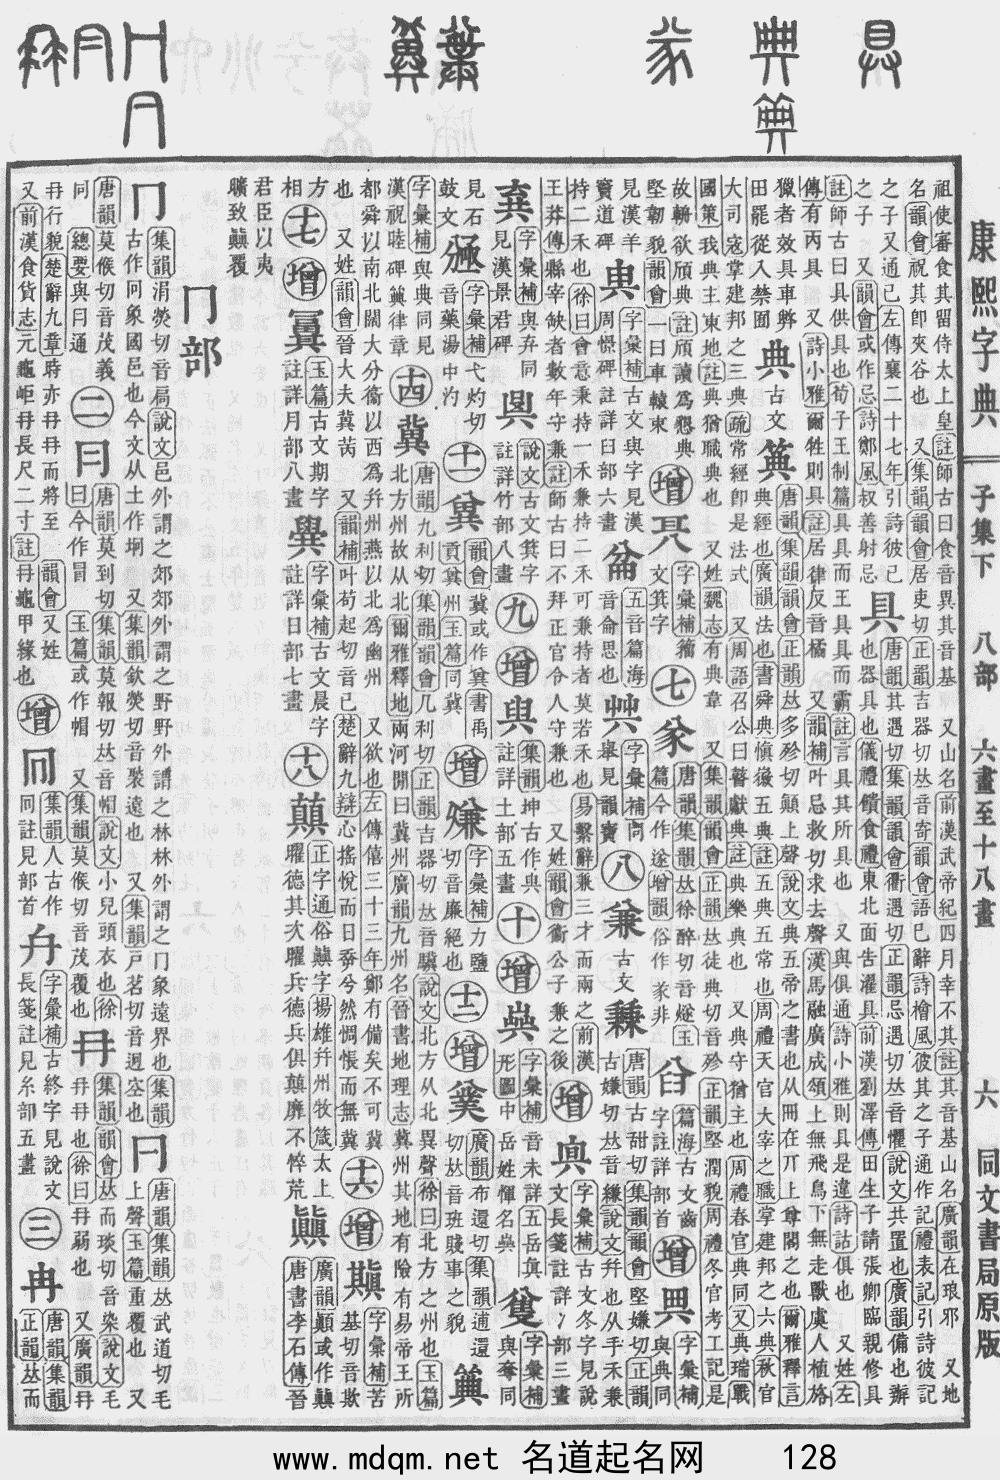 康熙字典 子集下 八部 六畫至十八畫 六 同文書局原版
祖使審食其留侍太上皇註師古曰食音異其音基 又山名前漢武帝紀四月幸不其註其音基山名廣韻在琅邪 又地
名韻會祝其卽夾谷也 又集韻韻會居吏切正韻吉器切𠀤音寄韻會語已辭詩檜風彼其之子通作記禮表記引詩彼記
之子又通己左傳襄二十七年引詩彼己
之子 又韻會或作忌詩鄭風叔善射忌
具
唐韻其遇切集韻韻會衢遇切正韻忌遇切𠀤音懼說文共置也廣韻備也辦
也器具也儀禮饋食禮東北面告濯具前漢劉澤傳田生子請張卿臨親修具
註師古曰具供具也荀子王制篇具具而王具具而霸註言具其所具也 又與俱通詩小雅則具是違詩詁俱也 又姓左
傳有丙具 又詩小雅爾牲則具註居律反音橘 又韻補叶忌救切求去聲漢馬融廣成頌上無飛鳥下無走獸虞人植旍
獵者效具車弊
田罷從入禁囿
典
古文
䈀
唐韻集韻韻會正韻𠀤多殄切顛上聲說文典五帝之書也从冊在丌上尊閣之也爾雅釋言
典經也廣韻法也書舜典愼徽五典註五典五常也周禮天官大宰之職掌建邦之六典秋官
大司寇掌建邦之三典疏常經卽是法式 又周語召公曰瞽獻典註典樂典也 又典守猶主也周禮春官典同又典瑞戰
國策我典主東地註典猶職典也 又姓魏志有典韋 又集韻韻會正韻𠀤徒典切音殄正韻堅潤貌周禮冬官考工記是
故輈欲頎典註頎讀爲懇典
堅韌貌韻會一曰車轅束
增
字彙補籀
文箕字
七
㒸
唐韻集韻𠀤徐醉切音燧玉
篇今作遂增韻俗作㒸非
篇海古文齒
字註詳部首
增
字彙補
與典同
見漢羊
竇道碑
字彙補古文與字見漢
周憬碑註詳臼部六畫
五音篇海
音侖思也
字彙補周
見韻寶
八
兼
古文
唐韻古甜切集韻韻會堅嫌切正韻
古嫌切𠀤音縑說文幷也从手禾兼
持二禾也徐曰會意秉持一禾兼持二禾可兼持者莫若禾也易繫辭兼三才而兩之前漢
王莽傳縣宰缺者數年守兼註師古曰不拜正官令人守兼也 又姓韻會衞公子兼之後
增
字彙補古文冬字見說
文長箋註詳冫部三畫
字彙補與弃同
見漢景君碑
說文古文箕字
註詳竹部八畫
九
增
與
集韻坤古作與
註詳土部五畫
十
增
字彙補音未詳五岳眞
形圖中岳姓惲名
字彙補
與奪同
見石
鼓文
字彙補弋灼切
音藥湯中灼
十一
韻會冀或作兾書禹
貢兾州玉篇同冀
增
字彙補力鹽
切音廉絕也
十二
增
廣韻布還切集韻逋還
切𠀤音班賤事之貌
字彙補與典同見
漢祝睦碑䈀律章
十四
冀
唐韻九利切集韻韻會几利切正韻吉器切𠀤音驥說文北方州也从北異聲徐曰北方之州也玉篇
北方州故从北爾雅釋地兩河閒曰冀州廣韻九州名晉書地理志冀州其地有險有易帝王所
都舜以南北闊大分衞以西爲幷州燕以北爲幽州 又欲也左傳僖三十三年鄭有備矣不可冀
也 又姓韻會晉大夫冀芮 又韻補叶苟起切音已楚辭九辯心搖悅而日㳟兮然惆悵而無冀
十六
增
字彙補苦
基切音欺
方
相
十七
增
玉篇古文期字
註詳月部八畫
字彙補古文晨字
註詳日部七畫
十八
顛
正字通俗顚字揚雄幷州牧箴太上
曜德其次曜兵德兵俱顛靡不悴荒
顚
廣韻顚或作顛
唐書李石傳晉
君臣以夷
曠致顚覆
冂部
冂
集韻涓熒切音扃說文邑外謂之郊郊外謂之野野外謂之林林外謂之冂象遠界也集韻
古作冋象國邑也今文从土作坰 又集韻欽熒切音褧遠也 又集韻戶茗切音迥空也
冃
唐韻集韻𠀤武道切毛
上聲玉篇重覆也 又
唐韻莫候切音茂義
同 總要與冃通
二
冃
唐韻莫到切集韻莫報切𠀤音帽說文小兒頭衣也徐
曰今作冒 玉篇或作帽 又集韻莫候切音茂覆也
冄
集韻韻會𠀤而琰切音染說文毛
冄冄也徐曰冄弱也 又廣韻冄
冄行貌楚辭九章時亦冄冄而將至 韻會又姓
又前漢食貨志元龜岠冄長尺二寸註冄龜甲緣也
增
集韻人古作
冋註見部首
字彙補古終字見說文
長箋註見糸部五畫
三
冉
唐韻集韻
正韻𠀤而
www.mdqm.net 名道起名网 128